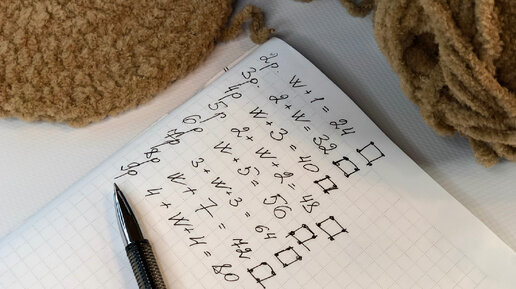 2р. W+1=24
3р. 2+W=32
4р W+3=40
5р 2+W+2=48
6р W+5=56
7р 3+W+3=64
8р W+7=72
9р 4+W+4=80